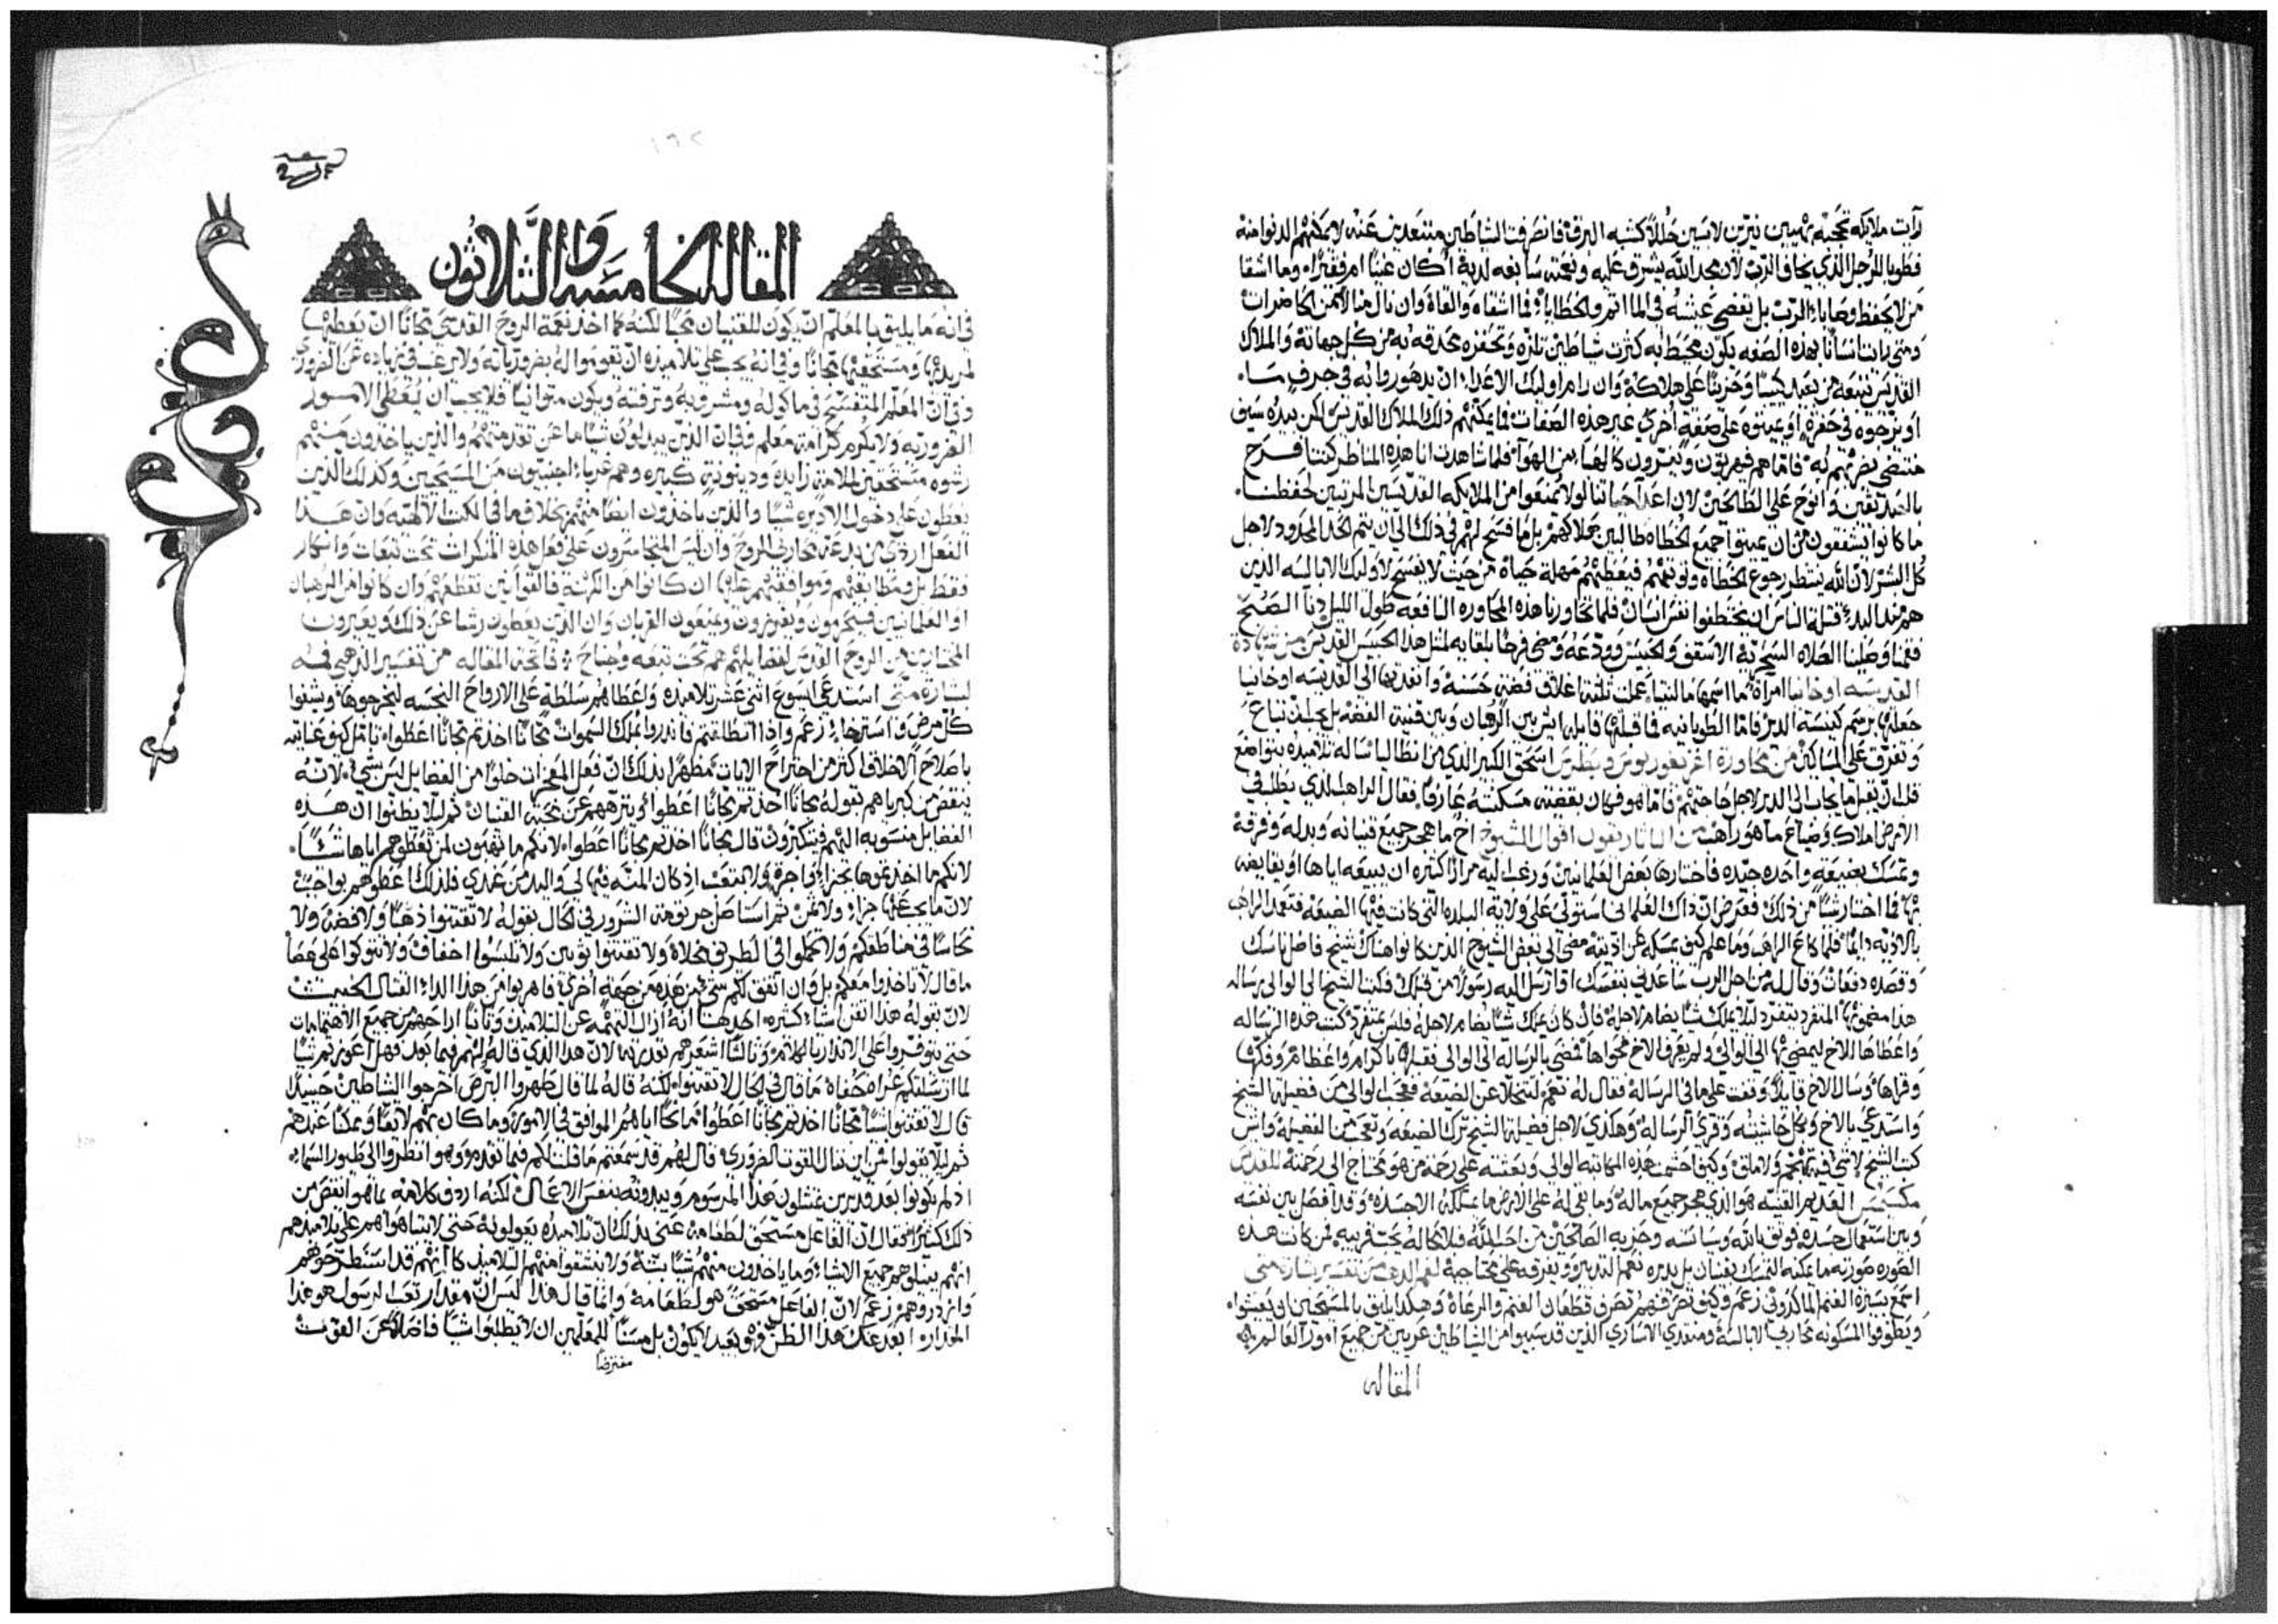 رأيت ملايكه تحجبه بهيين نيرين لابسين حللاً كشبه البرق فانصرفت الشياطين متبعدين عنه لا يمكنهم الدنوا منه
فطوبا للرجل الذي يخاف الرب لان مجد الله يشرق عليه ونعمته سابغه لديه اكان غنيًا ام فقيرًا وما اشقا
من لا يحفظ وصاياء الرب بل يقضي عيشه في الماثم والخطاياء فالشقاء والفاقه وان نال هنا الامن الحاضرات
ومتي رايت انسانًا بهذه الصفه يكون محيط به كثرت شياطين تلزه وتحفزه محدقه به من كل جهاته والملاك
القديس تتبعه من بعد كيبًا وحزينًا علي هلاكه وان رام اوليك الاعداء ان يدهوروا به في جرفٍ ما
او يزجوه في حفرهٍ او يميتوه علي صفه اخري غير هذه الصفات فما يمكنهم ذلك الملاك القديس لكن بيده سيف
منتضي يضربهم له فاما هم فيهربون ويبترون كالهباء من الهوآ فلما شاهدت انا هذه المناظر كنت افرح
بالصديقين وانوح علي الطالحين لان اعدآ حياتنا لولا يمنعوا من الملايكه القديسين المرتبين لحفظنا
ما كانوا يشفقون من ان يميتوا جميع الخطاه طالبين هلاكهم بل ما فسح لهم في ذلك الي ان يتم الحد المحدود لاجل
كل البشر لان الله ينتظر رجوع الخطاه وتوبتهم فيعطيهم مهلة حياه من حيث لا يفسح لاوليك الابالسه الذين
هم منذ البدء قتلة الناس ان يختطفوا نفس انسان فلما تحاورنا هذه المحاوره النافعه طول الليل دنآ الصبح
فقمنا وصلينا الصلاه السحريه الاسقف والحبيس وودعه ومضي فرحًا بلقايه لمثل هذا الحبيس القديس من شهادة
القديسه اوخانيا امرأة ما اسمها مالنتيا عملت ثلثة اغلاق فضة حسنه وانفذتها الي القديسه اوخانيا
جعلتها برسم كنيسة الدير فاما الطوبانيه فما قبلتها قايله ليس بين الرهبان وبين قنية الفضه بل يجب ان تباع
وتفرق علي المساكين من محاورة اغريغوريوس وبطرس اسحق الكبير الذي من انطاليا ساله تلاميذه بتواضع
قبل ان يقبل ما يجاب الي الدير لاجل حاجتهم فاما هو فكان بقضيته مسكنته عارفًا فقال الراهب الذي يطلب في
الارض املاك وضياع ما هو راهب من الباتاريقون اقوال الشيوخ اخ ما هجر جميع قنيانه وبدله وفرقه
وتمسك بضيعةٍ واحده جيده فاختارها بعض العلمانيين ورغب اليه مرارًا كثيره ان يبيعه اياها او يقايضه
بها فما اختار شيئًا من ذلك فعرض ان ذاك العلماني استولي علي ولاية البلده التي كانت فيها الضيعه فتعمد الراهب
بالاذيه دايمًا فلما كاع الراهب وما علم كيف يمسكه عن اذيته مضي الي بعض الشيوخ الذين كانوا هناك شيخ فاضل ناسك
وقصده دفعات وقال له من اجل الرب ساعدني بنفسك اقا ارسل اليه رسولاً من قبلك فكتب الشيخ الي الوالي رساله
هذا مضمونها المنفرد ينفرد ليلا يملك شيئًا يضام لاجله فان كان يملك شيئًا يضام لاجله فليس بمنفرد كتب هذه الرساله
واعطاها للاخ ليمضي بها الي الوالي ولم يعرف الاخ فحواها فمضي بالرساله الي الوالي فقبلها باكرام واعظام وفكها
وقراها وسال الاخ قايلاً وقفت علي ما في الرساله فقال له نعم لتتخلا عن الضيعه فعجب الوالي من فضيلة الشيخ
واستدعي بالاخ وبكل حاشيته وقري الرساله وهكذي لاجل فضيلة الشيخ ترك الضيعه وتعجب من الفضيله وايش
كتب الشيخ لا شي فيه تهجم ولا ماق وكيف احشمت هذه المكاتبه الوالي وبعثته علي رحمة من هو محتاج الي رحمته للقديس
مكسيمس العديم القنيه هو الذي هجر جميع ماله وما بقي له علي الارض ما يملكه الا جسده وقد افصل بين نفسه
وبين استعمال جسده فوثق بالله وسياسته وحزبه الصالحين من احباالله فلا تكاله تحت قريبه فمن كانت هذه
الصوره صورته ما يمكنه التمسك بقنيان بل يدبره نعم التدبير ويفرقه علي محتاجيه لفم الدهب من تفسير بشارة متي
اسمع بسيرة الغنم الماكدوني زعم وكيف تصرفهم تصرف قطعان الغنم والرعاه وهكذا يليق بالمسيحين ان يعيشوا
ويطوفوا المسكونه محاربي الابالسه ومنقذي الاساري الذين قد سبيوا من الشياطين عريين من جميع امور العالم
المقاله
المقاله الخامسه والثلاثون
في انه ما يليق بالمعلم ان يكون للقنيان محبًا لكنه كما اخذ نعمة الروح القدس مجانًا ان يعطيها
لمريديها ومستحقيها مجانًا وفي انه يجب علي تلاميذه ان يقوموا له بضرورياته ولا يرغب في زياده عن الضروري
وفي ان المعلم المتفسح في ماكوله ومشروبه وترفه ويكون متوانيًا فلا يجب ان يعطي الامور
الضروريه ولا يكرم كرامة معلم وفي ان الذين يبدلون شيًا ما عن تقدمتهم والذين ياخذون منهم
رشوه مستحقين لملامة زايده ودينونةٍ كبيره وهم غرباء اجنبيون من المسيحين وكذلك الذين
يعطون علي دخول الاديره شيًا والذين ياخذون ايضًا منهم بخلاف ما في الكتب الالهيه وان هذا
الفعل اردي من بدعة محاربي الروح وان ليس المتجاسرون علي فعل هذه المنكرات تحت تبعات وانكار
فقط بل ومطابقيهم وموافقيهم عليها ان كانوا من الكهنة فالقوانين تقطعهم وان كانوا من الرهبان
او العلمانيين فيحرمون ويفرزون ويمنعون القربان وان الذين يعطون رشا عن ذلك ويعيرون
المختارين من الروح القدس لفضايلهم هم تحت تبعه وجناح فاتحة المقاله من تفسير الذهبي فمه
لبشارة متي استدعي ايسوع اثني عشر تلاميذه واعطاهم سلطة علي الارواح النجسه ليخرجوها ويشفوا
كل مرضٍ واسترخاء زعم واذا انطلقتم فانذروا بملك السموات مجانًا اخذتم مجانًا اعطوا تامل كيف عنايته
باصلاح الاخلاق اكثر من اجتراح الايات مظهرًا بذلك ان فعل المعجزات خلوًا من الفضايل ليس بشيء لانه
ينقض من كبرياهم بقوله مجانًا اخذتم مجانًا اعطوا وينزههم عن محبة القنيان ثم ليلا يظنوا ان هذه
الفضايل منسوبه اليهم فيتكبرون قال مجانًا اخذتم مجانًا اعطوا لانكم ما تهبون لمن تعطوهم اياها شيئًا
لانكم ما اخذتموها بجزاءٍ واجرةٍ ولا بتعب اذ كان المنه فيها لي والبر من عندي فلذلك اعطوهم بواجب
لان ما يجب عنها جزاء ولا ثمن ثم استاصل جرثومة الشرور في الحال بقوله لا تقتنوا ذهبًا ولا فضه ولا
نحاسًا في مناطقكم ولا تحملوا في الطريق مخلاة ولا تقتنوا ثوبين ولا تلبسوا اخفاف ولا تتوكوا علي عصا
ما قال لا تاخذوا معكم بل وان اتفق لكم شي من هذه من جهةٍ اخري فاهربوا من هذا الداء القتال الخبيث
لان بقوله هذا اتقن اشياء كثيره احدها انه ازال التهمه عن التلاميذ وثانيًا اراحهم من جميع الاهتمامات
حتي يتوفروا علي الانذار بالكلام وثالثًا اشعرهم بقدرته لان هذا الذي قاله لهم فيما بعد فهل اعوزتم شيًا
لما ارسلتكم عراه حفاه ما قال في الحال لا تقتنوا لكنه قاله لما قال طهروا البرص اخرجوا الشياطين حينيذٍ
قال لا تقتنوا شيًا مجانًا اخذتم مجانًا اعطوا مانحًا اياهم الموافق في الامور وما كان بهم لايقًا وممكنًا عندهم
ثم ليلا يقولوا فمن اين ننال القوت الضروري قال لهم قد سمعتم ما قلت لكم فيما تقدم وهو انظروا الي طيور السماء
اذ لم يكونوا بعد قديرين يمتثلون هذا المرسوم ويبدونه بنفس الاعمال لكنه اردف كلامه بما هو انقص من
ذلك كثيرًا فقال ان الفاعل مستحق لطعامه عني بذلك ان تلاميذه يعولونه حتي لا يتباهوا هم علي تلاميذهم
انهم يبذلوهم جميع الاشياء وما ياخذون منهم شيًا بته ولا يعشقوا منهم التلاميذ كانهم قد استطرحوهم
وازدروهم زعم لان الفاعل مستحق هو لطعامه وانما قال هذا ليس ان مقدار تعب الرسول هو هذا
المقدار ابعد عنك هذا الظن فهو بعيد لا يكون بل مسنًا للمعلمين ان لا يطلبوا شيًا فاضلاً عن القوت
مفترضًا